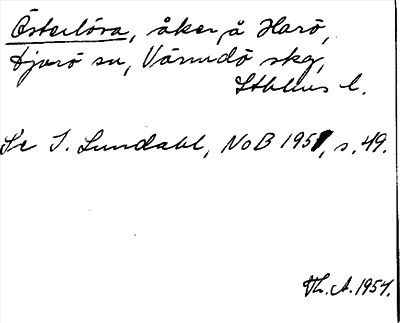 Österlöva, åker, å Harö,
Djurö sn, Värmdö skg,
Sthlms l.
Se I. Lundahl, NoB 1951, s. 49.
Th. A. 1954.